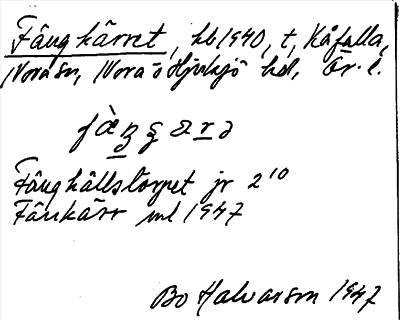 Fångkärret, hb 1940, t, Kåfalla,
Nora sn, Nora o Hjulsjö hd, Ör. l.
Fånghällstorpet jr 2¹⁰
Fänkärr ml 1947
Bo Halvarson 1947